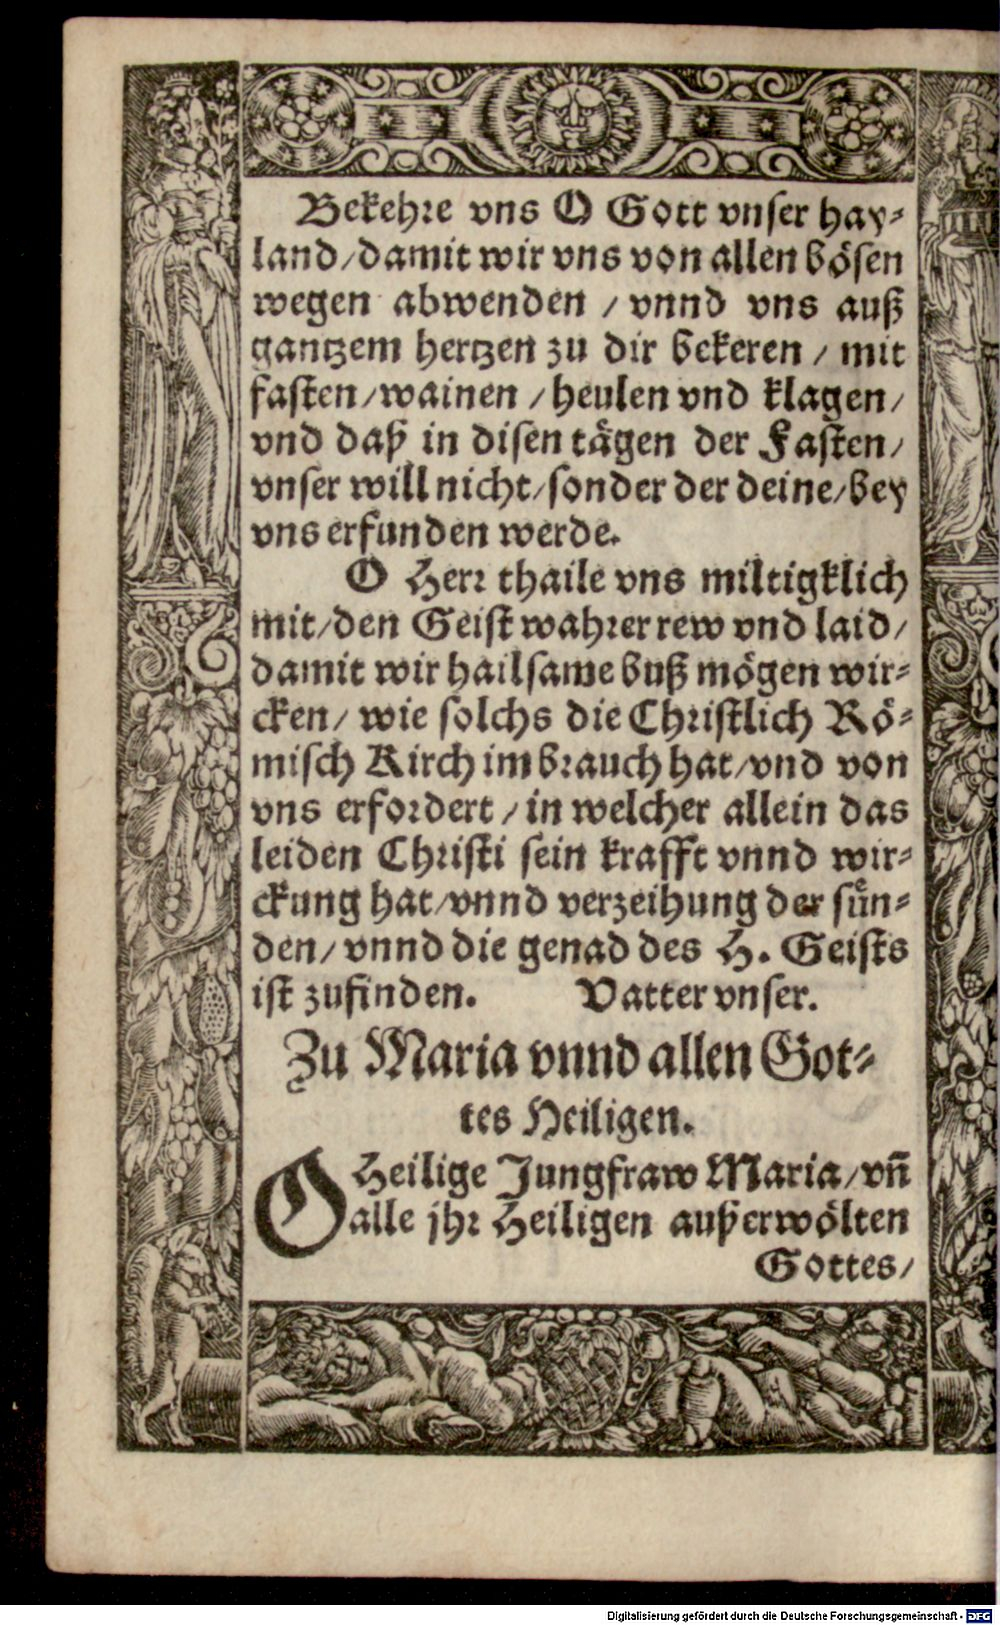 Bekehre vns O Gott vnser hay⸗
land/damit wir vns von allen bösen
wegen abwenden / vnnd vns auß
gantzem hertzen zu dir bekeren / mit
fasten/wainen /heulen vnd klagen/
vnd daß in disen tägen der Fasten/
vnser will nicht/sonder der deine/bey
vns erfunden werde.
O Herr thaile vns miltigklich
mit/den Geist wahrer rew vnd laid/
damit wir hailsame buß mögen wir⸗
cken/ wie solchs die Christlich Rö⸗
misch Kirch im brauch hat/vnd von
vns erfordert / in welcher allein das
leiden Christi sein krafft vnnd wir⸗
ckung hat/vnnd verzeihung der sün⸗
den/ vnnd die genad des H. Geists
ist zufinden. Vatter vnser.
Zu Maria vnnd allen Got⸗
tes Heiligen.
O Heilige Jungfraw Maria/vñ
alle jhr Heiligen außerwölten
Gottes/
Digitalisierung gefördert durch die Deutsche Forschungsgemeinschaft - DFG